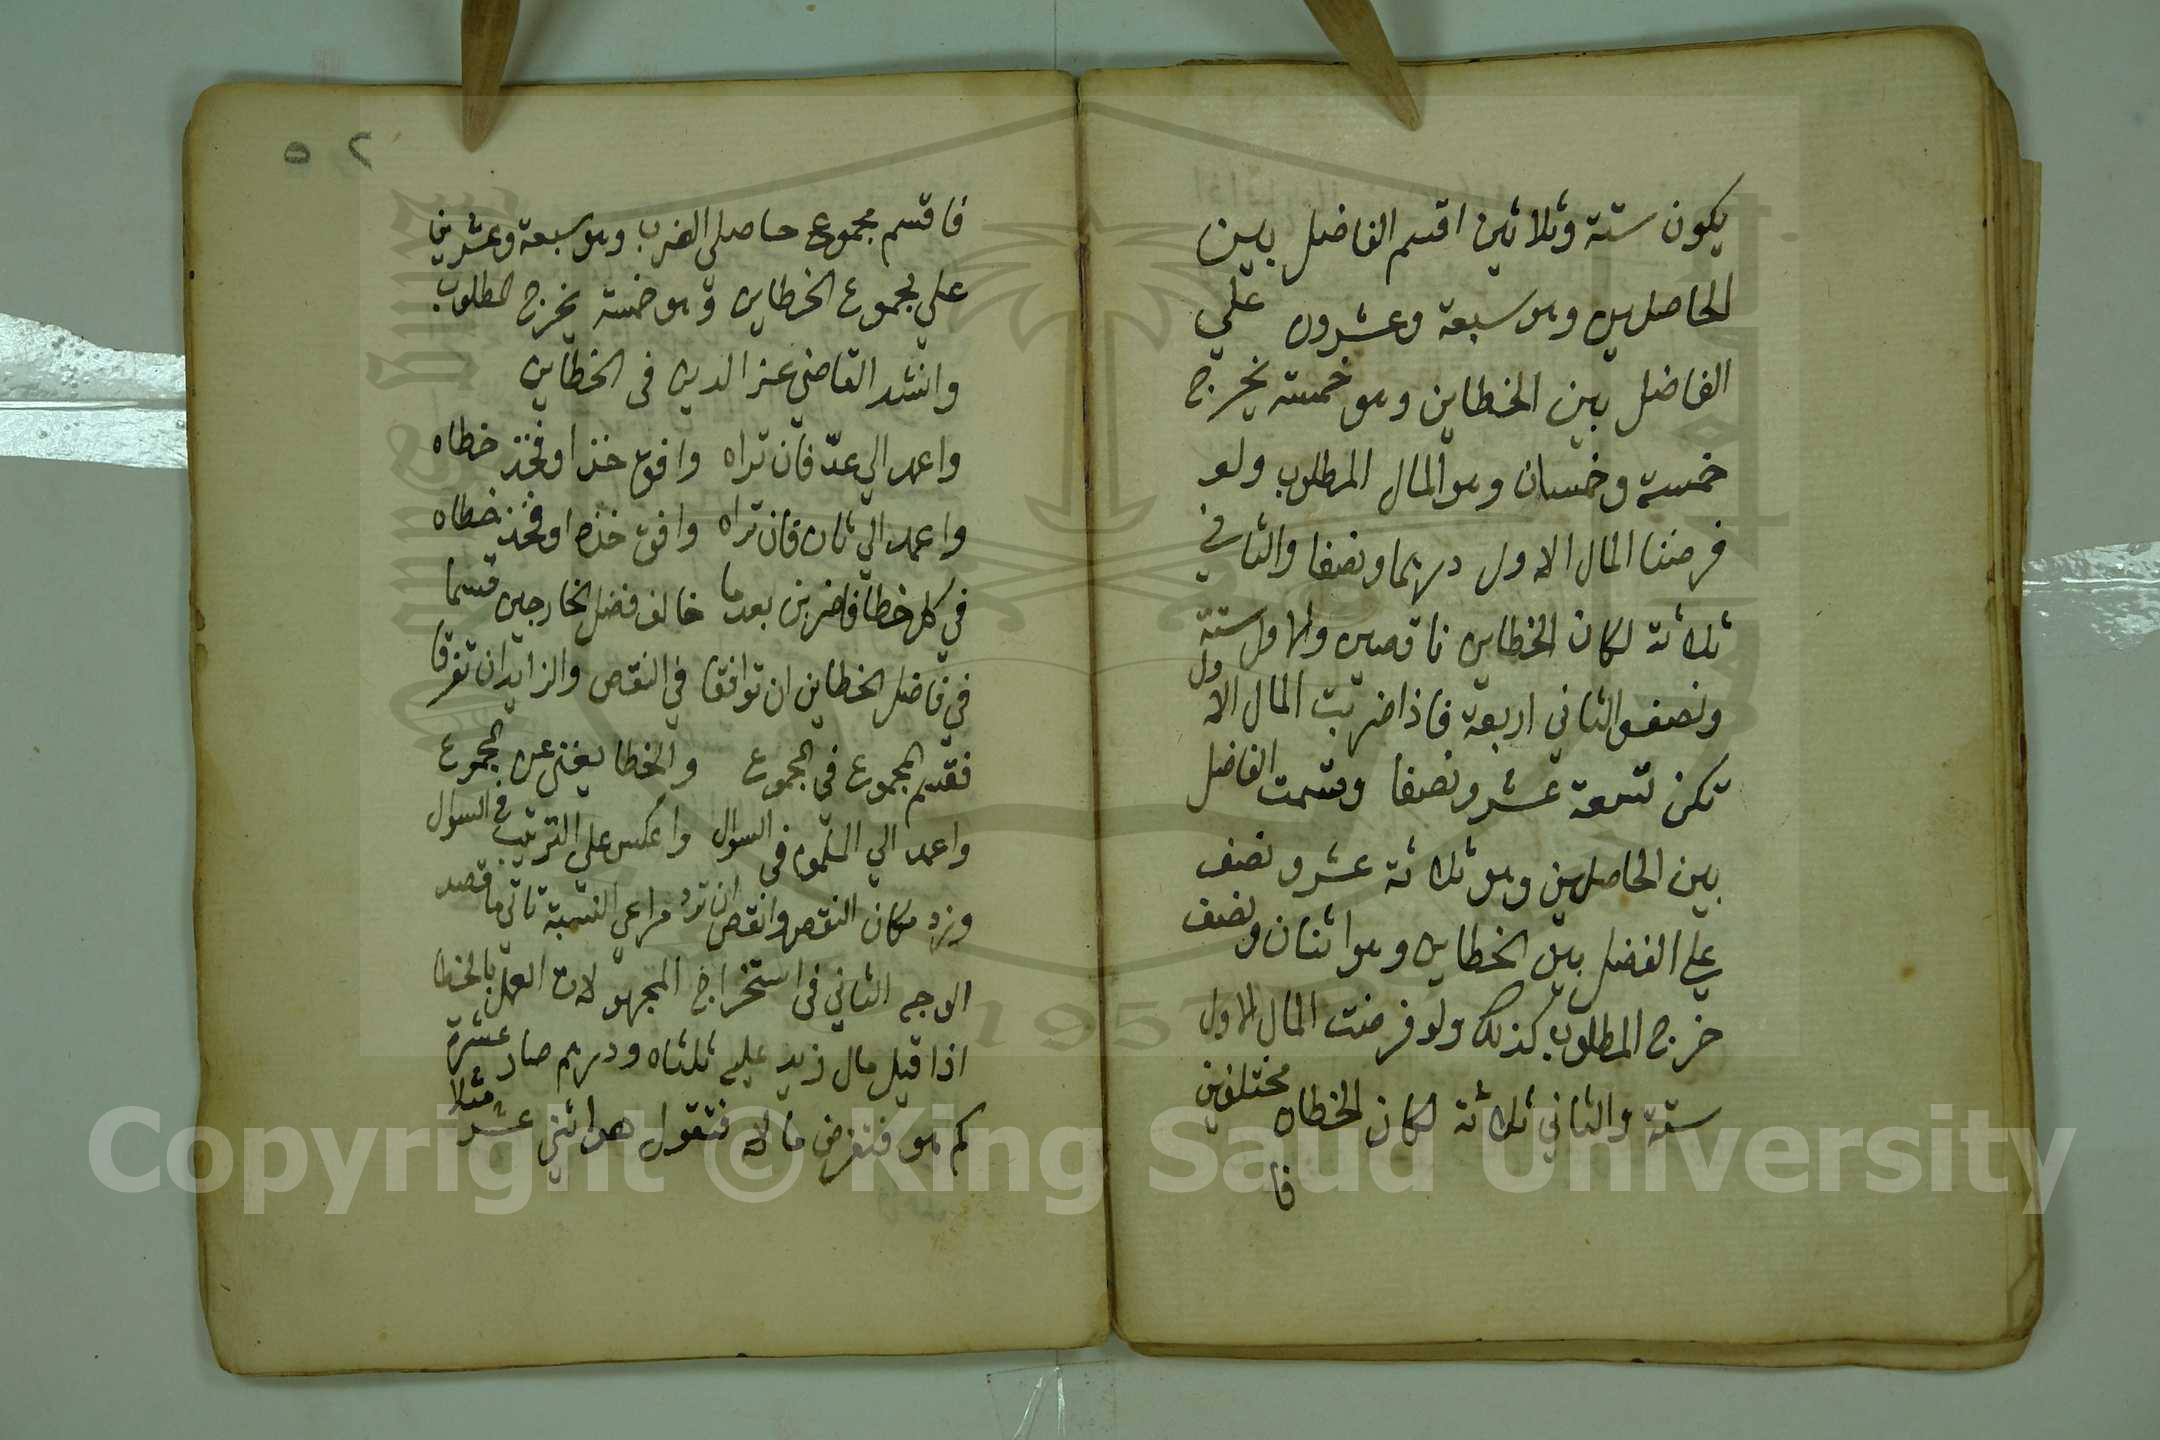 يكون ستة وثلاثين اقسم الفاضل بين
الحاصلين وهو سبعة وعشرون علي
الفاضل بين الخطاين وهو خمسة يخرج
خمسة وخمسان وهو المال المطلوب ولو
فرضنا المال الاول درهما ونصفا والثاني
ثلاثة لكان الخطاين ناقصين والاول ستة
ونصف والثاني اربعة فاذا ضربت المال الاول
تكن تسعة عشر ونصفا وقسمت الفاضل
بين الحاصلين وهو ثلاثة عشر ونصف
علي الفضل بين الخطاين وهو اثنان ونصف
خرج المطلوب كذلك ولو فرضت المال الاول
ستة والثاني ثلاثة لكان الخطاه مختلفين
فا
٥٢
فاقسم مجموع حاصلي الضرب وهو سبعة وعشرين
علي مجموع الخطاين وهو خمسة يخرج المطلوب
وانشد القاضي عز الدين في الخطاين
واعمد الي عد فان تراه وافق خذا او فخذ خطاه
واعمد الي ثان فان تراه وافق خذه او فخذ خطاه
في كل خطا فاضربن بعدما خالف فضل الخارجين قسما
في فاضل الخطاين ان توافقا في النقص والزايد ان تفرقا
فقسم المجموع في المجموع والخطا يغني عن المجموع
واعمد الي المعلوم في السوال واعكس علي الترتيب في السوال
وزد مكان النقص وانقص ان ترد مراعي النسبة تاتي ما قصد
الوجه الثاني في استخراج المجهولات العمل بالخطا
اذا قيل مال زيد عليه ثلثاه ودرهم صار عشرة
كم هو فتفرض مالا فتقول هو اثني عشر مثلا
Copyright © King Saud University
1957